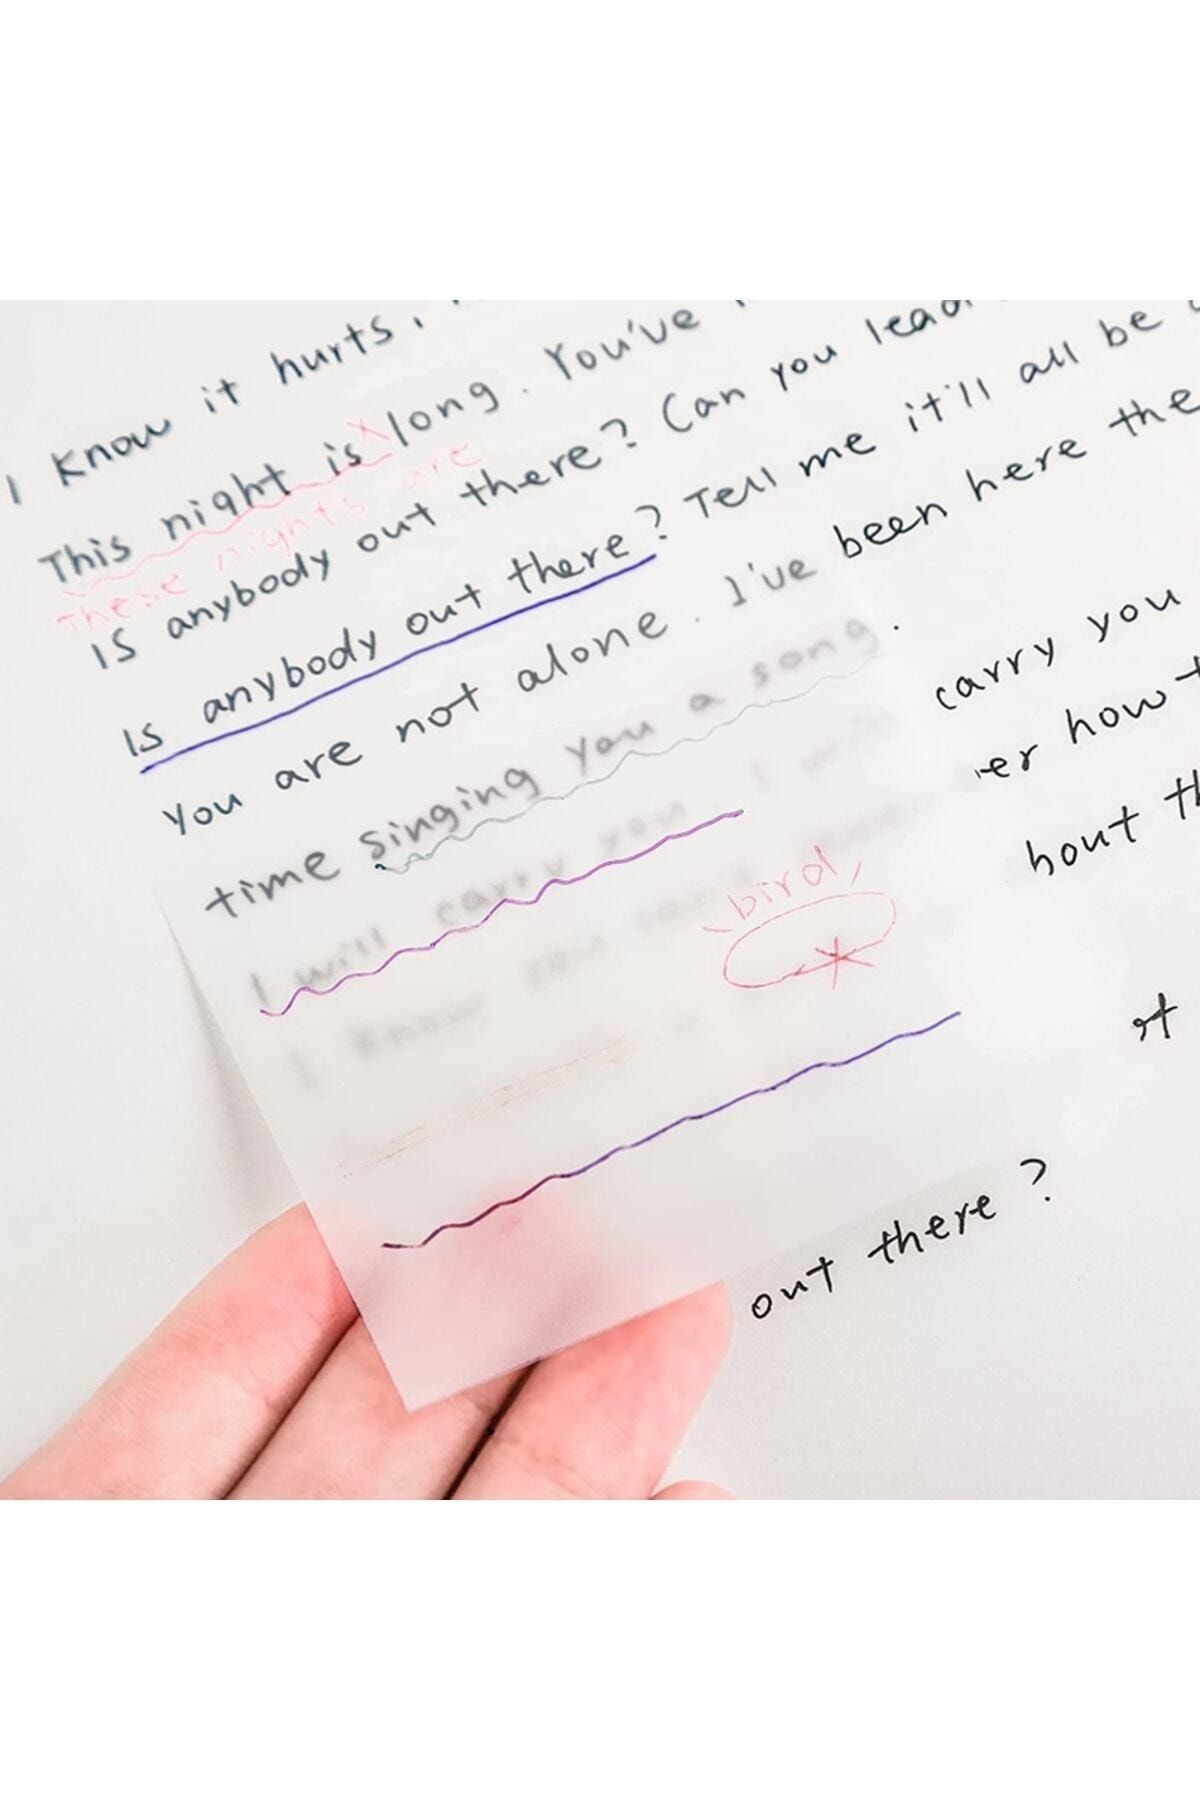 I know it hurts,
This night is long. You've
These nights are
Is anybody out there? Can you lead
Is anybody out there? Tell me it'll all be
You are not alone. I've been here the
time singing you a song.
I will carry you. I will carry you
I know you can't er how t
bird
bout th
out there?